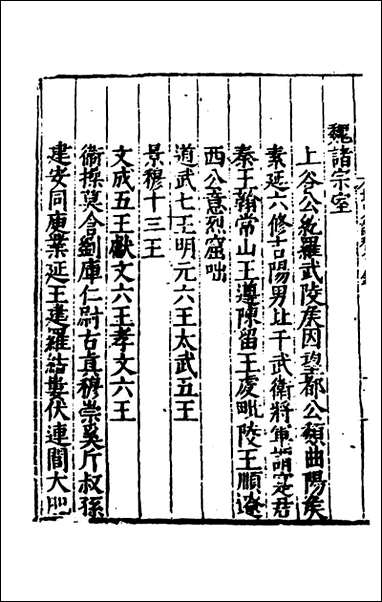 魏諸宗室
上谷公紇羅武陵矦因望都公頹曲陽矦
素延六修吉陽男比干武衛將軍謂寔君
秦王翰常山王遵陳留王虔毗陵王順遼
西公意烈窟咄
道武七王明元六王太武五王
景穆十三王
文成五王獻文六王孝文六王
衛操莫含劉庫仁尉古真穆崇奚斤叔孫
建安同庾業延王建羅結婁伏連閭大肥